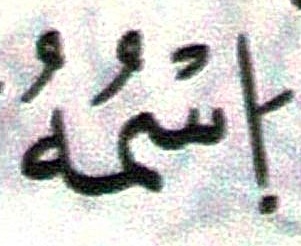 إسْمُهُ